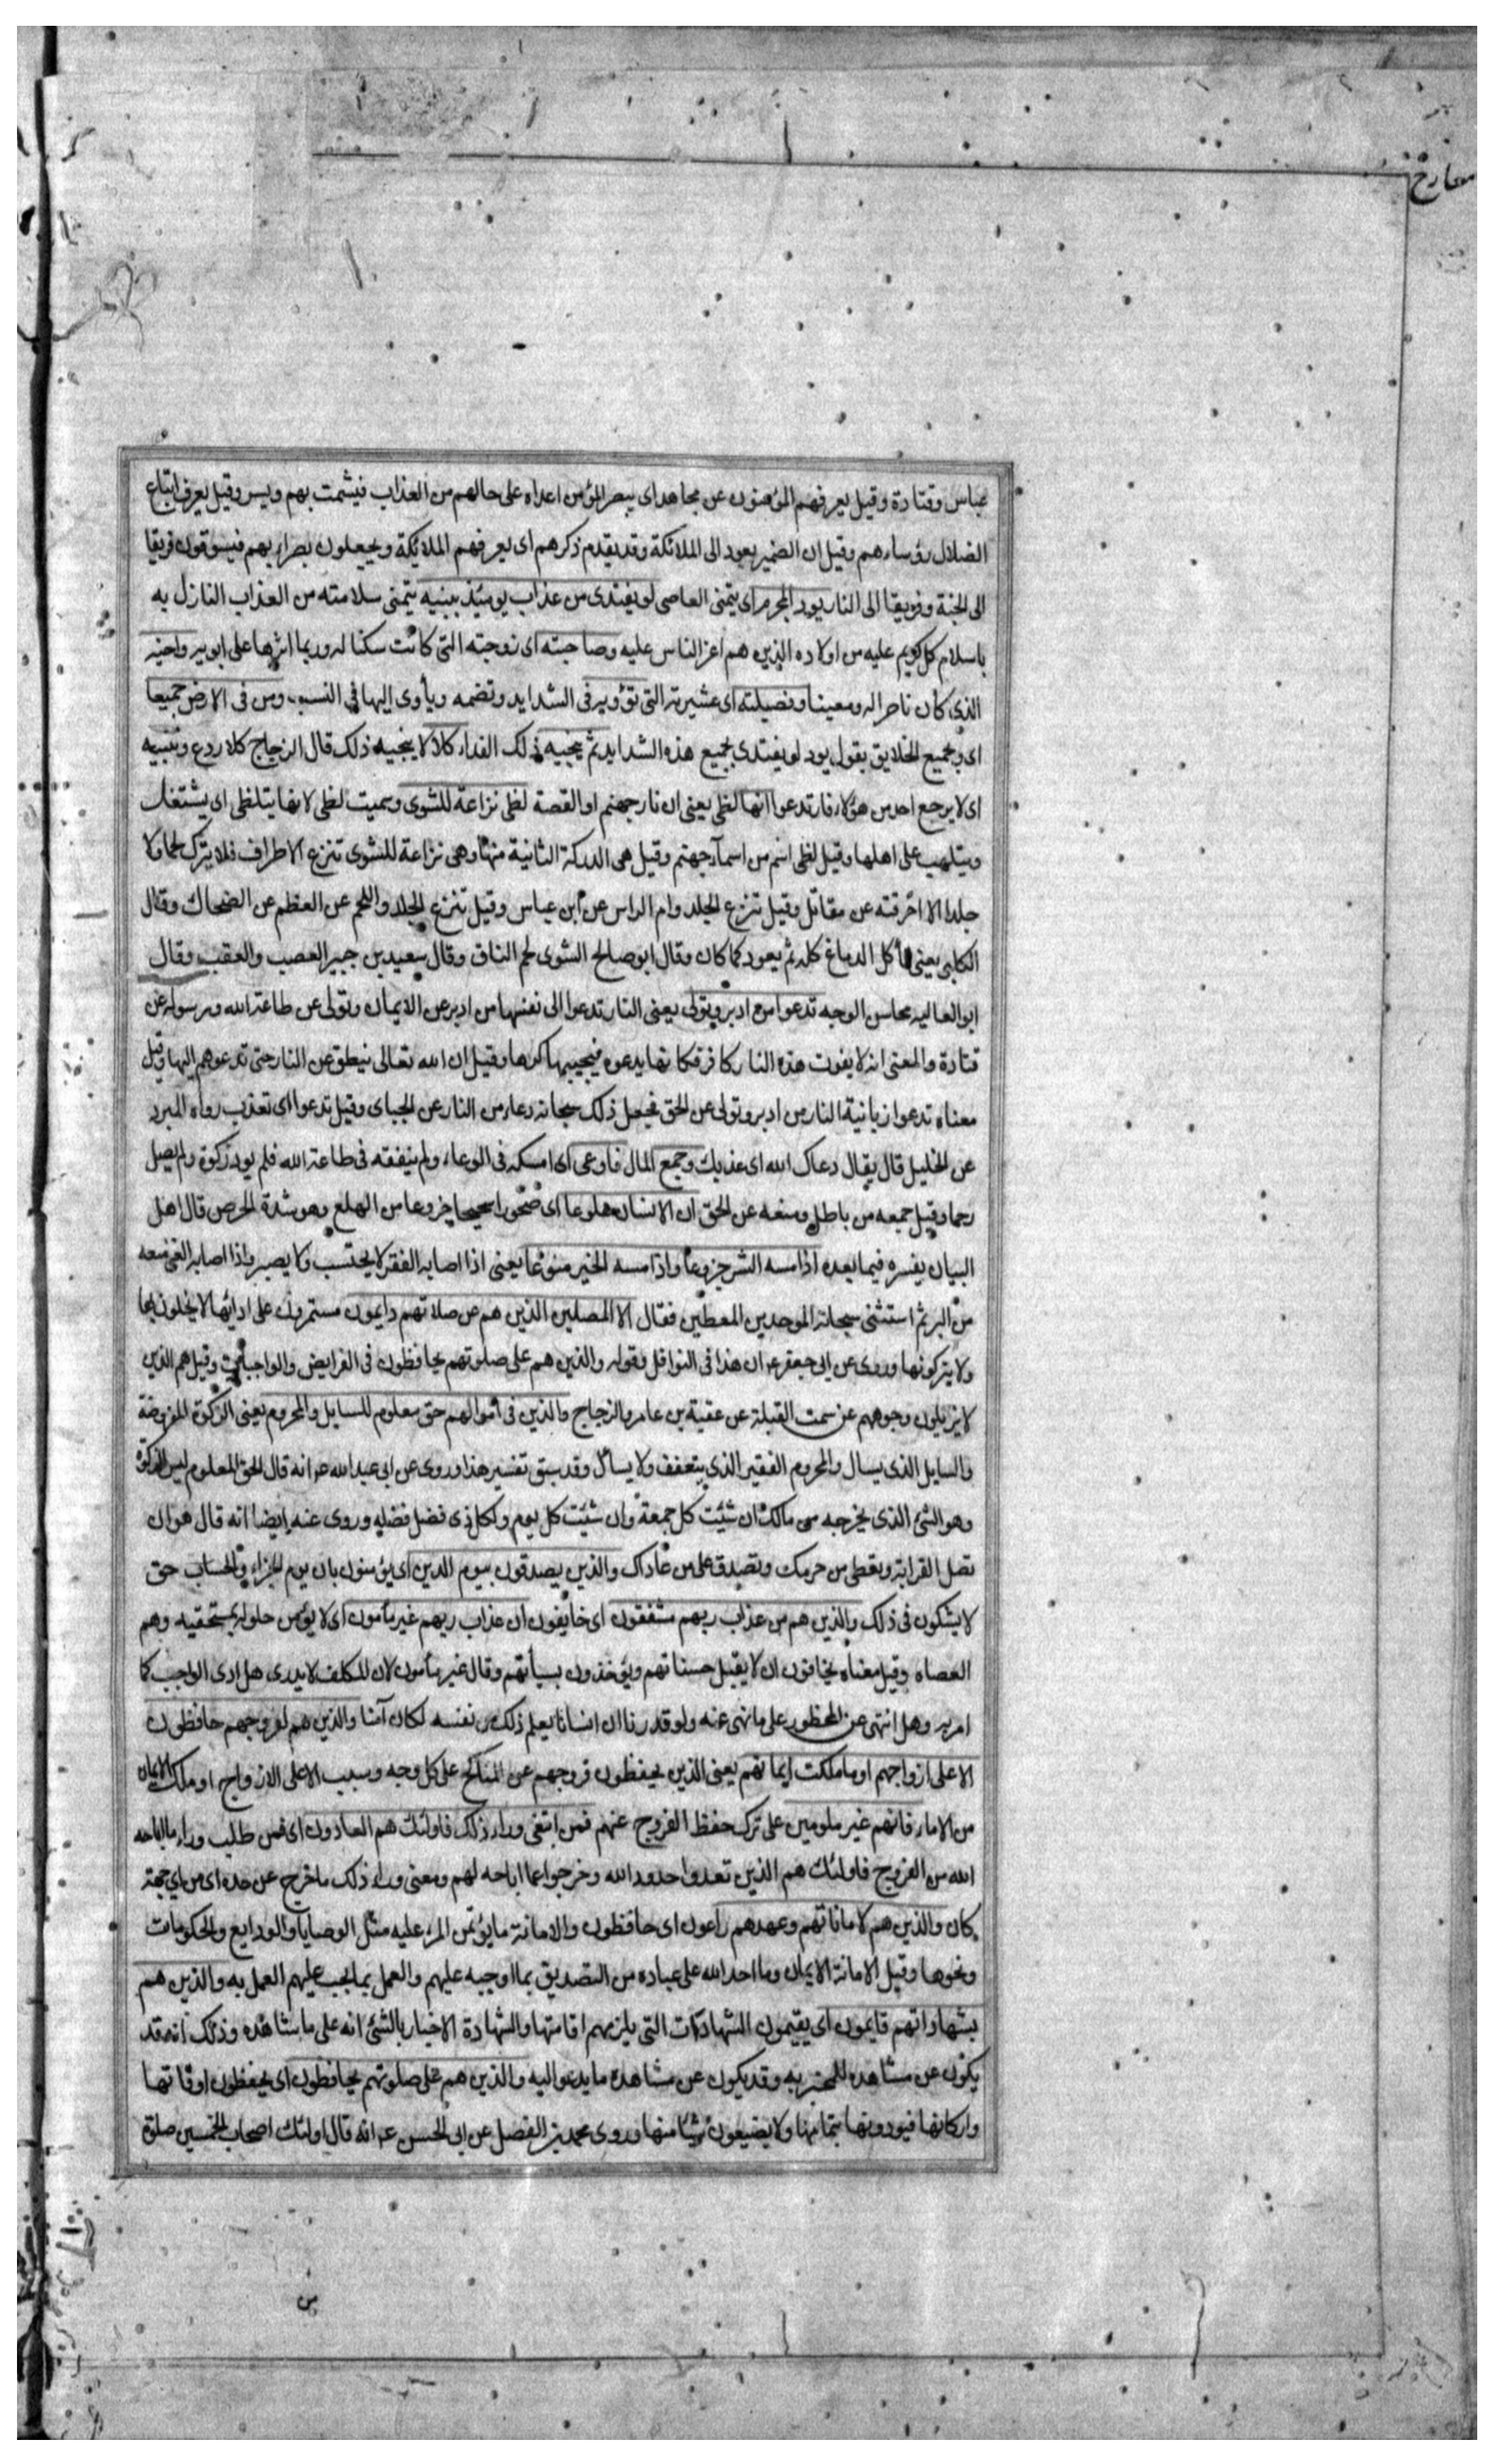 معارج
عباس وقتادة وقيل يعرفهم المؤمنون عن مجاهد اى يبصر المؤمن اعداه على حالهم من العذاب فيشمت بهم ويسر وقيل يعرف اتباع
الضلال رؤساءهم وقيل ان الضمير يعود الى الملائكة وقد يقدم ذكرهم اى يعرفهم الملائكة ويجعلون بصراء بهم فيسوقون فريقا
الى الجنة وفريقا الى النار يود المجرم اى يتمنى العاصى لو يفتدى من عذاب يومئذ ببنيه يتمنى سلامته من العذاب النازل به
باسلام كل كريم عليه من اولاده الذين هم اعز الناس عليه وصاحبته اى زوجته التى كانت سكنا له وربما اثرها على ابويه واخيه
الذى كان ناصرا له ومعينا وفصيلته اى عشيرته التى تؤويه فى الشدايد وتضمه ويأوى اليها فى النسب ومن فى الارض جميعا
اى وبجميع الخلايق يقول يود لو يفتدى بجميع هذه الشدايد ثم ينجيه ذلك الفداء كلا لا ينجيه ذلك قال الزجاج كلا ردع وتنبيه
اى لا يرجع احد من هؤلاء فارتدعوا انها لظى يعنى ان نار جهنم او القصة لظى نزاعة للشوى وسميت لظى لانها يتلظى اى يشتغل
ويتلهب على اهلها وقيل لظى اسم من اسمآء جهنم وقيل هى الدركة الثانية منها وهى نزاعة للشوى تنزع الاطراف فلا يترك لحما ولا
جلدا الا احرقته عن مقاتل وقيل تنزع الجلد وام الراس عن ابن عباس وقيل تنزع الجلد واللحم عن العظم عن الضحاك وقال
الكلبى يعنى تأكل الدماغ كله ثم يعود كما كان وقال ابو صالح الشوى لحم الساق وقال سعيد بن جبير العصب والعقب وقال
ابو العاليه محاسن الوجه تدعوا من ادبر وتولى يعنى النار تدعوا الى نفسها من ادبر عن الايمان وتولى عن طاعة الله ورسوله عن
قتادة والمعنى انه لا يفوت هذه النار كافر فكانها يدعوه فيجيبها كرها وقيل ان الله تعالى نيطق عن النار حتى تدعوهم اليها وقيل
معناه تدعوا زبانية النار من ادبر وتولى عن الحق فجعل ذلك سبحانه دعاء من النار عن الجباى وقيل تدعوا اى تعذب رواه المبرد
عن الخليل قال يقال دعاك الله اى عذبك وجمع المال فاوعى اى امسكه فى الوعاء ولم ينفقه فى طاعة الله فلم يود زكوة ولم يصل
رحما وقيل جمعه من باطل ومنعه عن الحق ان الانسان خلق هلوعا اى ضجورا شحيحا جزوعا من الهلع وهو شدة الحرص قال اهل
البيان يفسره فيما بعده اذا مسه الشر جزوعا واذا مسه الخير منوعا يعنى اذا اصابه الفقر لا يحتسب ولا يصبر واذا اصابه الغنى منعه
من البر ثم استثنى سبحانه الموحدين المعطين فقال الا المصلين الذين هم عن صلاتهم دايمون مستمرون على ادائها لا يخلون بها
ولا يتركونها وروى عن ابى جعفر ع ان هذا فى النوافل وقوله والذين هم على صلوتهم يحافظون فى الفرايض والواجبات وقيل هم الذين
لا يزيلون وجوههم عن سمت القبلة عن عقبة بن عامر والزجاج والذين فى اموالهم حق معلوم للسايل والمحروم يعنى الزكوة المفروضة
والسايل الذى يسال والمحروم الفقير الذى يتعفف ولا يسال وقد سبق تفسير هذا وروى عن ابى عبد الله ع انه قال الحق المعلوم ليس الزكوة
وهو الشئ الذى يخرجه من مالك ان شئت كل جمعة وان شئت كل يوم ولكل ذى فضل فضله وروى عنه ايضا انه قال هو ان
تصل القرابة وتعطى من حرمك وتصدق على من عاداك والذين يصدقون بيوم الدين اى يؤمنون بان يوم الجزاء والحساب حق
لا يشكون فى ذلك والذين هم من عذاب ربهم مشفقون اى خايفون ان عذاب ربهم غير مأمون اى لا يؤمن حلوله بمستحقيه وهم
العصاه وقيل معناه يخافون ان لا يقبل حسناتهم ويؤخذون بسيأتهم وقال غير مأمون لان المكلف لا يدرى هل ادى الواجب كما
امر به وهل انتهى عن المحظور على ما نهى عنه ولو قدرنا ان انسانا يعلم ذلك من نفسه لكان آمنا والذين هم لفروجهم حافظون
الا على ازواجهم او ما ملكت ايمانهم يعنى الذين يحفظون فروجهم عن المناكح على كل وجه وسبب الا على الازواج او ملك الايمان
من الاماء فانهم غير ملومين على ترك حفظ الفروج عنهم فمن ابتغى وراء ذلك فاولئك هم العادون اى فمن طلب وراء ما اباحه
الله من الفروج فاولئك هم الذين تعدوا حدود الله وخرجوا عما اباحه لهم ومعنى وراء ذلك ما خرج عن حده اى من اى جهة
كان والذين هم لاماناتهم وعهدهم راعون اى حافظون والامانة ما يؤتمن المرء عليه مثل الوصايا والودايع والحكومات
ونحوها وقيل الامانة الايمان وما اخذ الله على عباده من التصديق بما اوجبه عليهم والعمل بما يجب عليهم العمل به والذين هم
بشهاداتهم قايمون اى يقيمون الشهادات التى يلزمهم اقامتها والشهادة الاخبار بالشئ انه على ما شاهده وذلك انه قد
يكون عن مشاهده للمخبر به وقد يكون عن مشاهدة ما يدعوا ليه والذين هم على صلوتهم يحافظون اى يحفظون اوقاتها
واركانها فيودونها بتمامها ولا يضيعون شيئا منها وروى محمد بن الفضل عن ابى الحسن ع انه قال اولئك اصحاب الخمسين صلوة